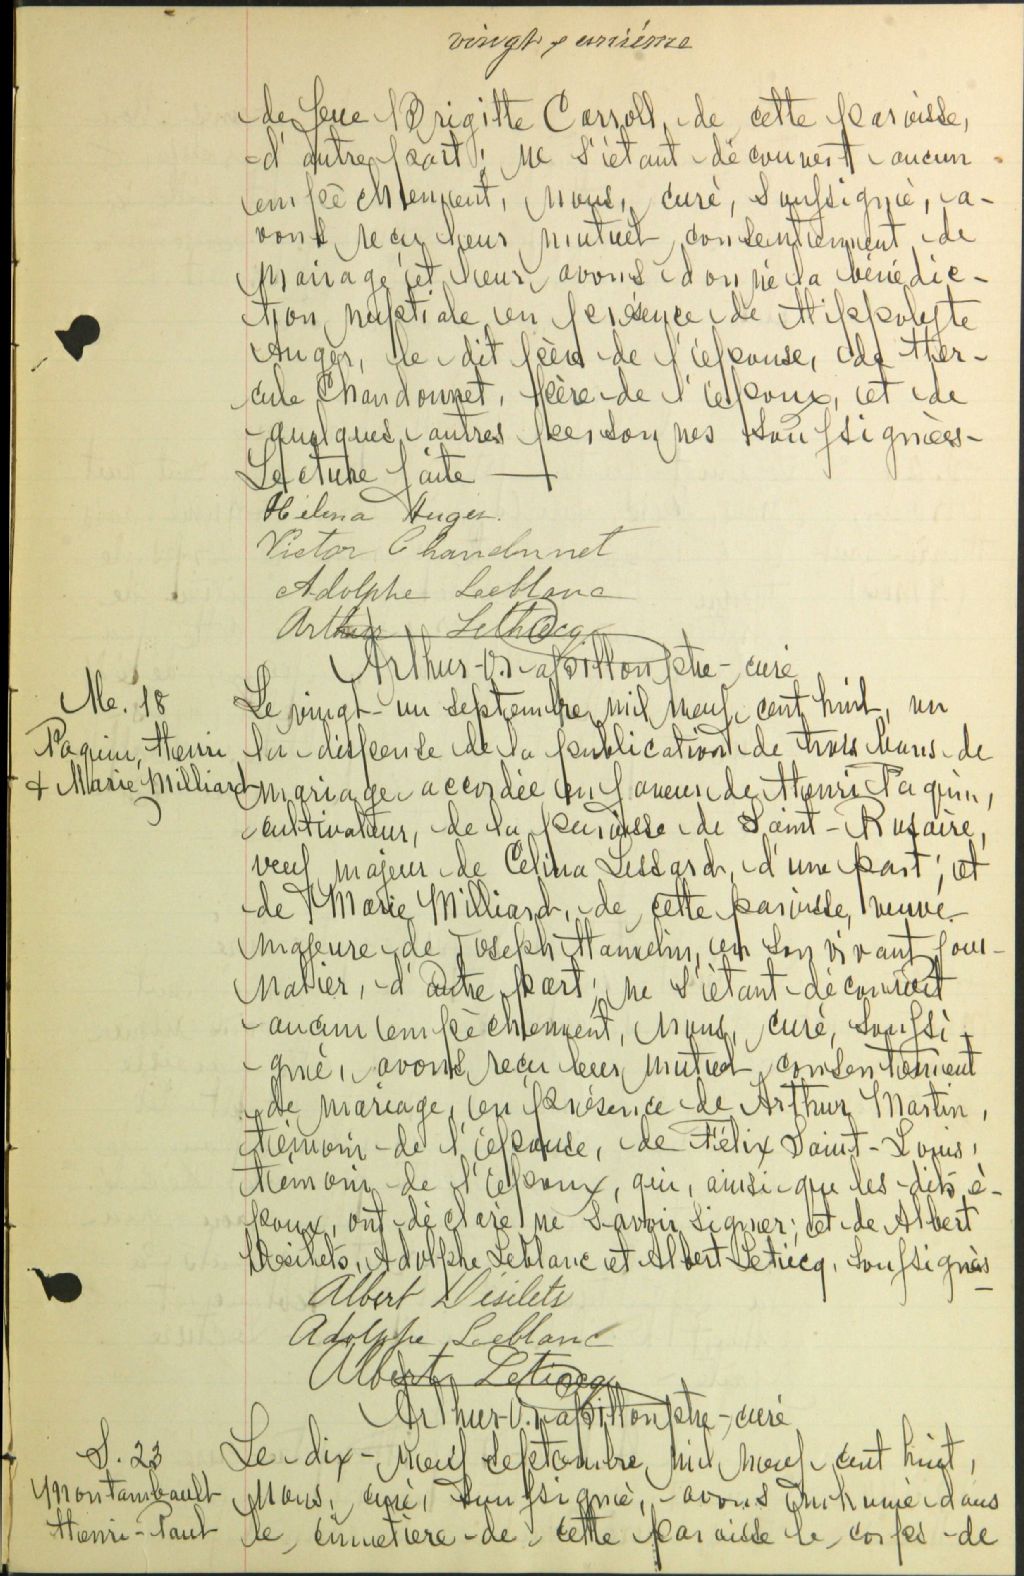 vingt & unième
de feue Brigitte Carroll, de cette paroisse,
d'autre part; ne s'étant découvert aucun
empêchement, nous, curé, soussigné, a-
vons reçu leur mutuel consentement de
mairage et leur avons donné la bénédic-
tion nuptiale en présence de Hippolyte
Auger, le dit père de l'épouse, de Her-
cule Chandonnet, père de l'époux, et de
quelques autres personnes soussignées-
Lecture faite —
Hélena Auger.
Victor Chandonnet
Adolphe Leeblanc
Arthur Letiecq
Arthur-O. Papillon ptre-curé
Me. 18
Paquin, Henri
& Marie Milliard
Le vingt-un septembre mil neuf cent huit, vu
la dispense de la publication de trois bans de
mariage accordée en faveur de Henri Paquin,
cultivateur, de la paroisse de Saint-Rosaire,
veuf majeur de Célina Lessard, d'une part; et
de Marie Milliard, de cette paroisse, veuve
majeure de Joseph Hamelin, en son vivant jour-
nalier, d'autre part; ne s'étant découvert
aucun empêchement, nous, curé, soussi-
gné, avons reçu leur mutuel consentement
de mariage, en présence de Arthur Martin,
témoin de l'épouse, de Félix Saint-Louis,
témoin de l'époux, qui, ainsi que les dits é-
poux, ont déclaré ne savoir signer; et de Albert
Désilets, Adolphe Leblanc et Albert Letiecq, soussignés-
Albert Désilets
Adolphe Leeblanc
Albert Letiecq
Arthur-O. Papillon ptre-curé
S. 23
Montambault
Henri-Paul
Le dix-neuf septembre mil neuf cent huit,
nous, curé, soussigné, avons inhumé dans
le cimetière de cette paroisse le corps de